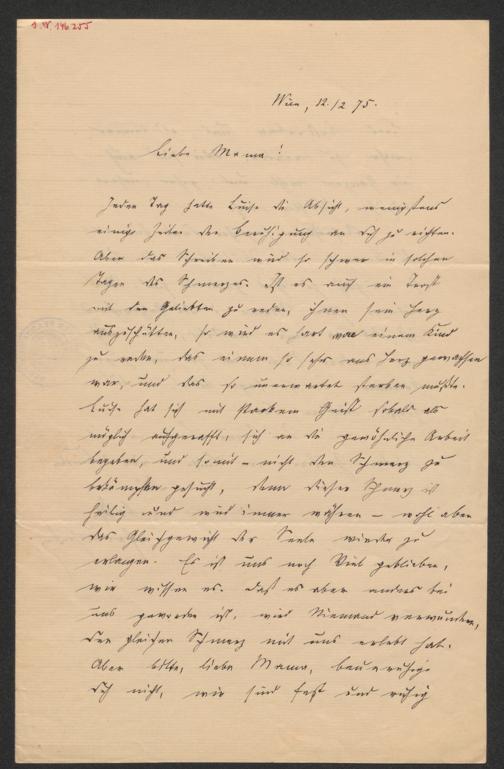 I.N. 146.255
Wien, 12./2 75.
Liebe Mama!
Jeden Tag hatte Luise die Absicht, wenigstens
einige Zeilen der Beruhigung an Dich zu richten.
Aber das Schreiben wird so schwer in solchen
Tagen des Schmerzes. Ist es auch ein Trost
mit den Geliebten zu reden, ihnen sein Herz
auszuschütten, so wird es hart von einem Kind
zu reden, das einem so sehr ans Herz gewachsen
war, und das so unerwartet sterben mußte.
Luise hat sich mit starkem Geist sobald als
möglich aufgerafft, sich an die gewöhnliche Arbeit
begeben, und somit – nicht den Schmerz zu
bekämpfen gesucht, denn dieser Schmerz ist
heilig und wird immer währen – wohl aber
das Gleichgewicht der Seele wieder zu
erlangen. Es ist uns noch Viel geblieben,
wir wissen es. Daß es aber anders bei
uns geworden ist, wird Niemand verwundern,
der gleichen Schmerz mit uns erlebt hat.
Aber bitte, liebe Mama, beunruhige
Dich nicht, wir sind fest und ruhig